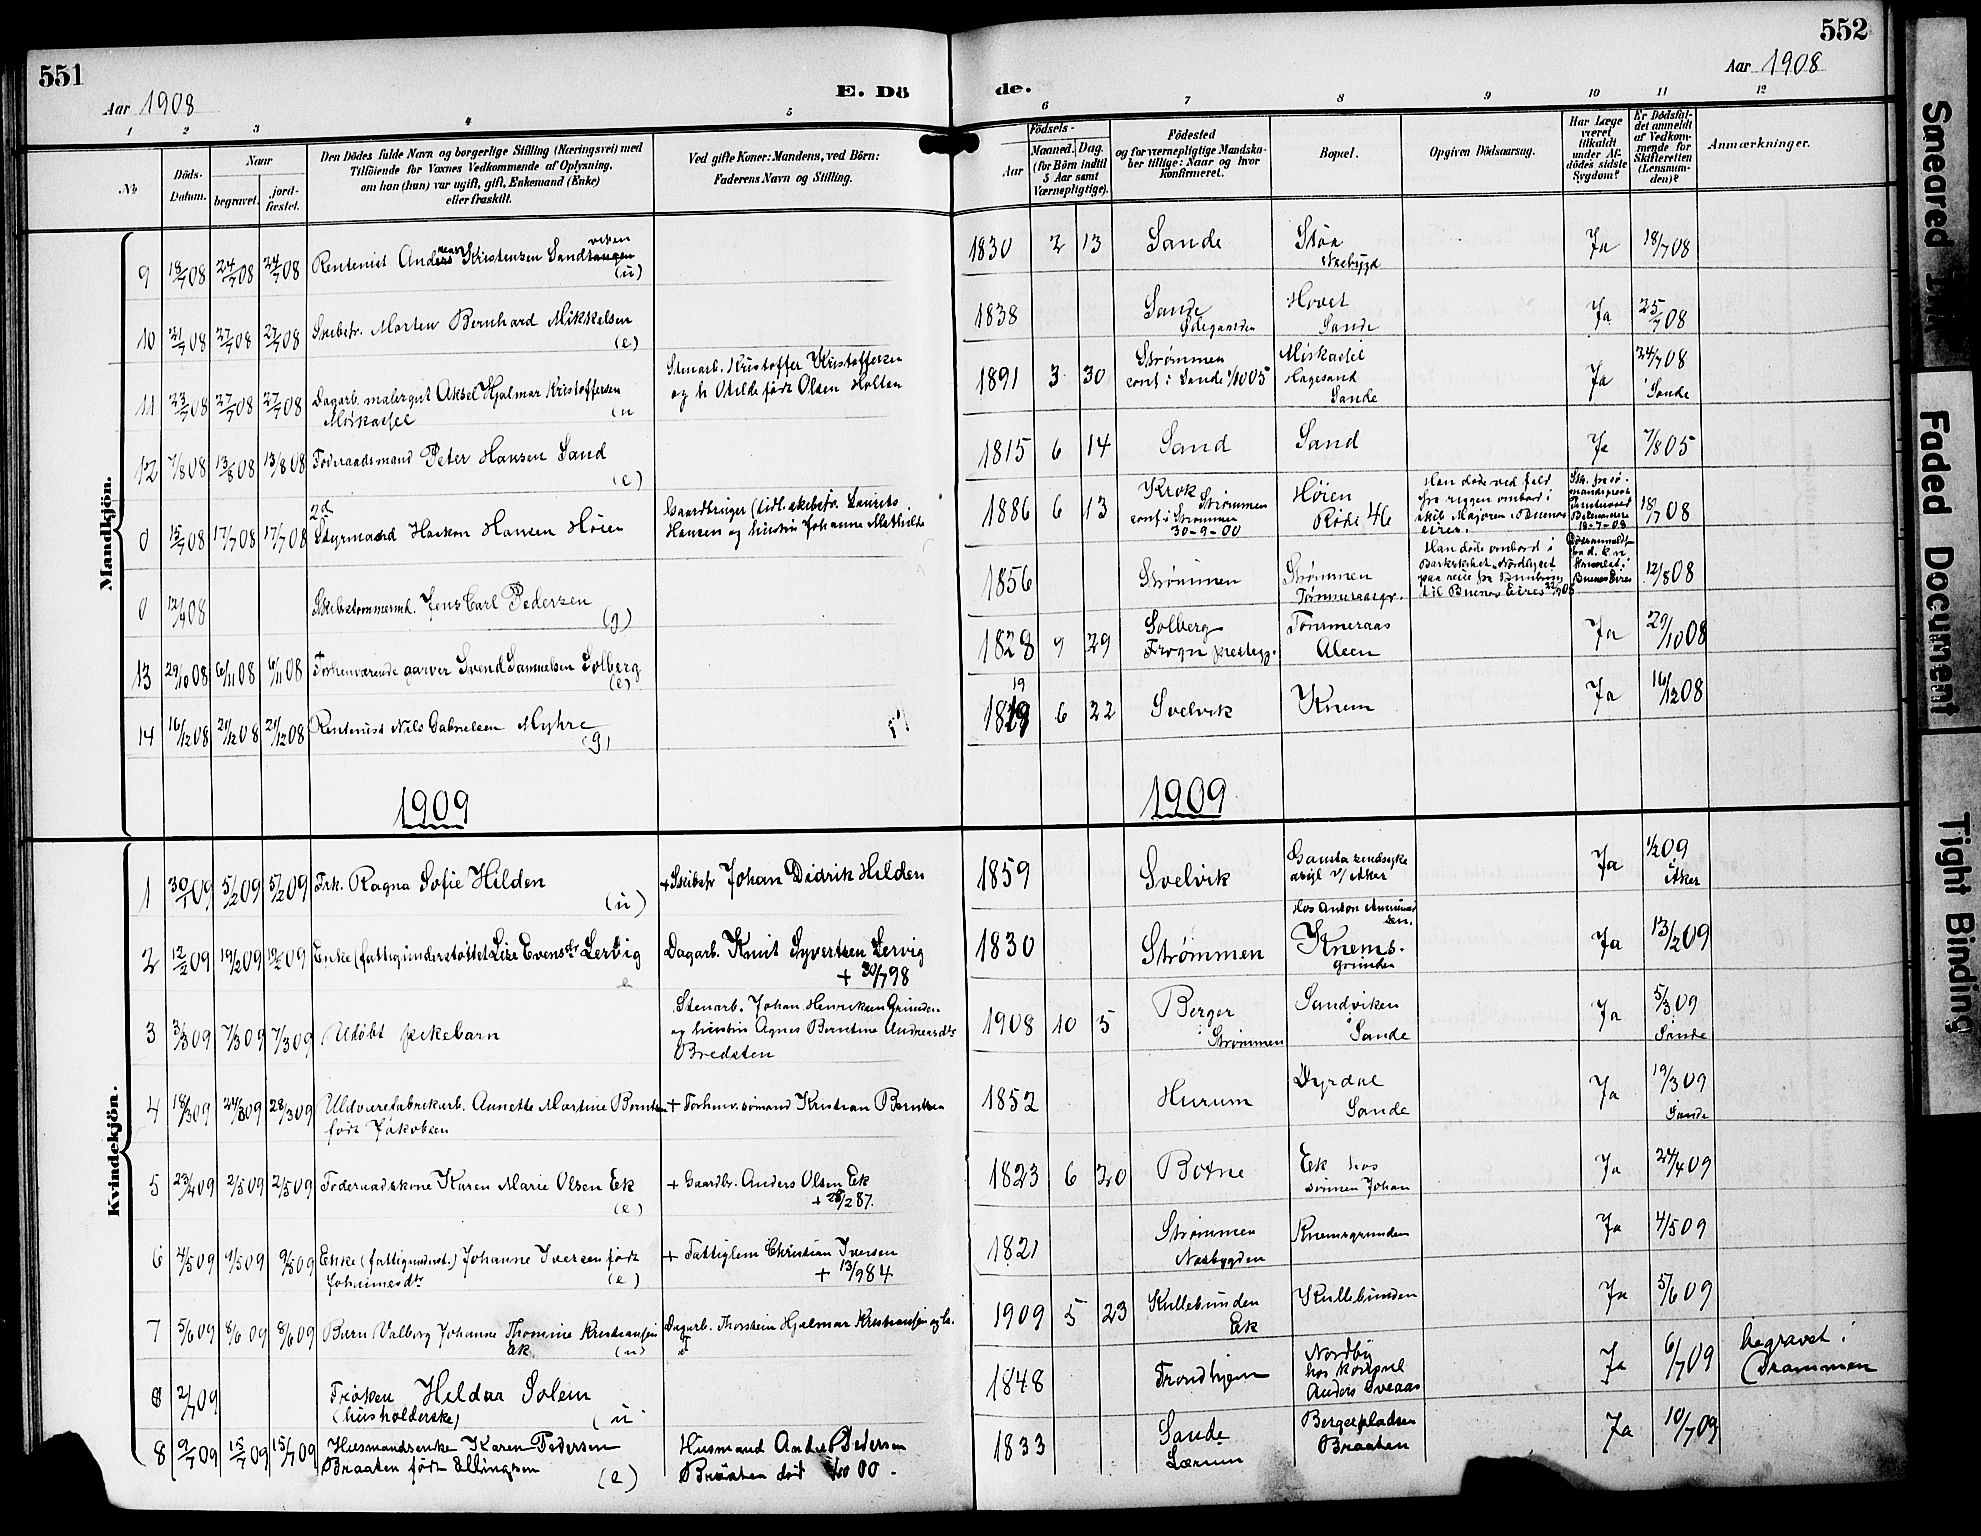 551
Aar 1908
E. Dö
de.
552
Aar 1908
1 2 3 4 5 6 7 8 9 10 11 12
No
Döds-
Datum.
Naar
begravet.
jord-
fæstet.
Den Dödes fulde Navn og borgerlige Stilling (Næringsvei) med
Tilföiende for Voxnes Vedkommende af Oplysning,
om han (hun) var ugift, gift, Enkemand (Enke)
eller fraskilt.
Ved gifte Koner: Mandens, ved Börn:
Faderens Navn og Stilling.
Födsels-
Aar
Maaned. Dag.
(for Börn indtil
5 Aar samt
Værnepligtige).
Födested
og for værnepligtige Mandska-
ber tillige: Naar og hvor
konfirmeret.
Bopæl.
Opgiven Dödsaarsag.
Har Læge
været
tilkaldt
under Af-
dödes sidste
Sygdom?
Er Dödsfal-
det anmeldt
af Vedkom-
mende for
Skifteretten
(Lensman-
den)?
Anmærkninger.
Mandkjön.
9 18/7 08 24/7 08 24/7 08 Rentenist Anders Kristensen Sandtangen
viken
(u)
1830 2 13 Sande Støa
Nesbygd
Ja 18/7 08
10 21/7 08 27/7 08 27/7 08 Skibsfr. Morten Bernhard Mikkelsen
(e)
1838 Sande
Ødegaarden
Hovet
Sande
Ja 25/7 08
11 23/7 08 27/7 08 27/7 08 Dagarb. malergut Aksel Hjalmar Kristoffersen
Mörkassel (u
Stenarb. Kristoffer Kristoffersen
og h Otilde født Olsen Holtan
1891 3 30 Strømmen
conf i Sande 1/10 05
Mörkassel
Hagesand
Sande
Ja 24/7 08
i Sande
12 7/8 08 13/8 08 13/8 08 Føderaadsmand Peter Hansen Sand
(e)
1815 6 14 Sand Sand Ja 7/8 05
0 15/7 08 17/7 08 17/7 08 2d
Styrmand Haakon Hansen Höien
Gaardbruger (tidl. skibsfr. Laurits
Hansen og hustru Johanne Mathilde
1886 6 13 Krok Strømmen
conf i Strømmen
30-9-00
Höien
Röde 46
Han døde ved fald
fra riggen ombord i
skib Majoren i Buenos
eires.
18/7 08
0 12/4 08 Skibstømmermd. Jens Carl Pedersen
(g)
1856 Strømmen Strømmen
Tømmeraasgr.
Han døde ombord i
Barkskibet "Nordlyset
paa reise fra Bunbury
til Buenos Eires
12/8 08
13 29/10 08 6/11 08 6/11 08 Forhenværende garver Svend Samuelsen Solberg
(e)
1828 9 29 Solberg
Frogn prestegj.
Tømmeraas
Aleen
Ja 29/10 08
14 16/12 08 21/12 08 21/12 08 Rentenist Nils Gabrielsen Myhre
(g)
19
1819 6 22 Svelvik Knem Ja 16/12 08
1909
1909
Kvindekjön.
1 30/1 09 5/2 09 5/2 09 Frk. Ragna Sofie Hilden
(u)
+ Skibsfr Johan Didrik Hilden
1859 Svelvik Gausta sindsyke
asyl v/ Aker
Ja 1/2 09
i Aker
2 12/2 09 19/2 09 19/2 09 Enke (fattigunderstøttet Lise Evensdtr Lervig
e
Dagarb. Knut Syvertsen Lervig
+ 30/7 98
1830 Strømmen Hos Anton Amundsen.
Knems-
grunden
Ja 13/2 09
3 3/3 09 7/3 09 7/3 09 Udøbt pikebarn
Stenarb. Johan Henriksen Grunden
og hustru Agnes Berntine Andreasdtr
Bredsten
1908 10 5 Berger
i Strømmen
Sandviken
i Sande
Ja 5/3 09
Sande
4 18/3 09 24/3 09 28/3 09 Uldvarefabrikarb. Annette Martine Berntsen
født Jakobsen
+ Forhenv. sømand Kristian Berntsen
1852 Hurum Dyrdal
Sande
Ja 19/3 09
Sande
5 23/4 09 2/5 09 2/5 09 Føderaadskone Karen Marie Olsen Ek
(e)
+ Gaardbr. Anders Olsen Ek
+ 28/2 87.
1823 6 20 Botne Ek hos
sønnen Johan
Ja 24/4 09
6 4/5 09 9/5 09 9/5 09 Enke (fattigunderst.) Johanne Iversen født
Johannesdtr (e)
+ Fattiglem Christian Iversen
+ 13/9 84
1821 Strømmen
Nesbygden
Knemsgrunden
Ja 4/5 09
7 5/6 09 8/6 09 8/6 09 Barn Valborg Johanne Thomine Kristiansen
Ek (u)
Dagarb. Thorstein Hjalmar Kristiansen og h.
1909 5 23 Kullebunden
Ek
Kullebunden
Ja 5/6 09
0 2/7 09 Frøken Hildaa Solem
(husholderske) (u
1848 Trondhjem Nordby
hos korpral
Anders Sveaas
Ja 6/7 09 begravet i
Drammen
8 9/7 09 15/7 09 15/7 09 Husmandsenke Karen Pedersen
Braaten født Ellingsen (e)
Husmand Anders Pedersen
Braaten død 00.
1833 Sande
Lærum
Bergerpladsen
Braaten
Ja 10/7 09
Smeared Ink
Faded Document
Tight Binding